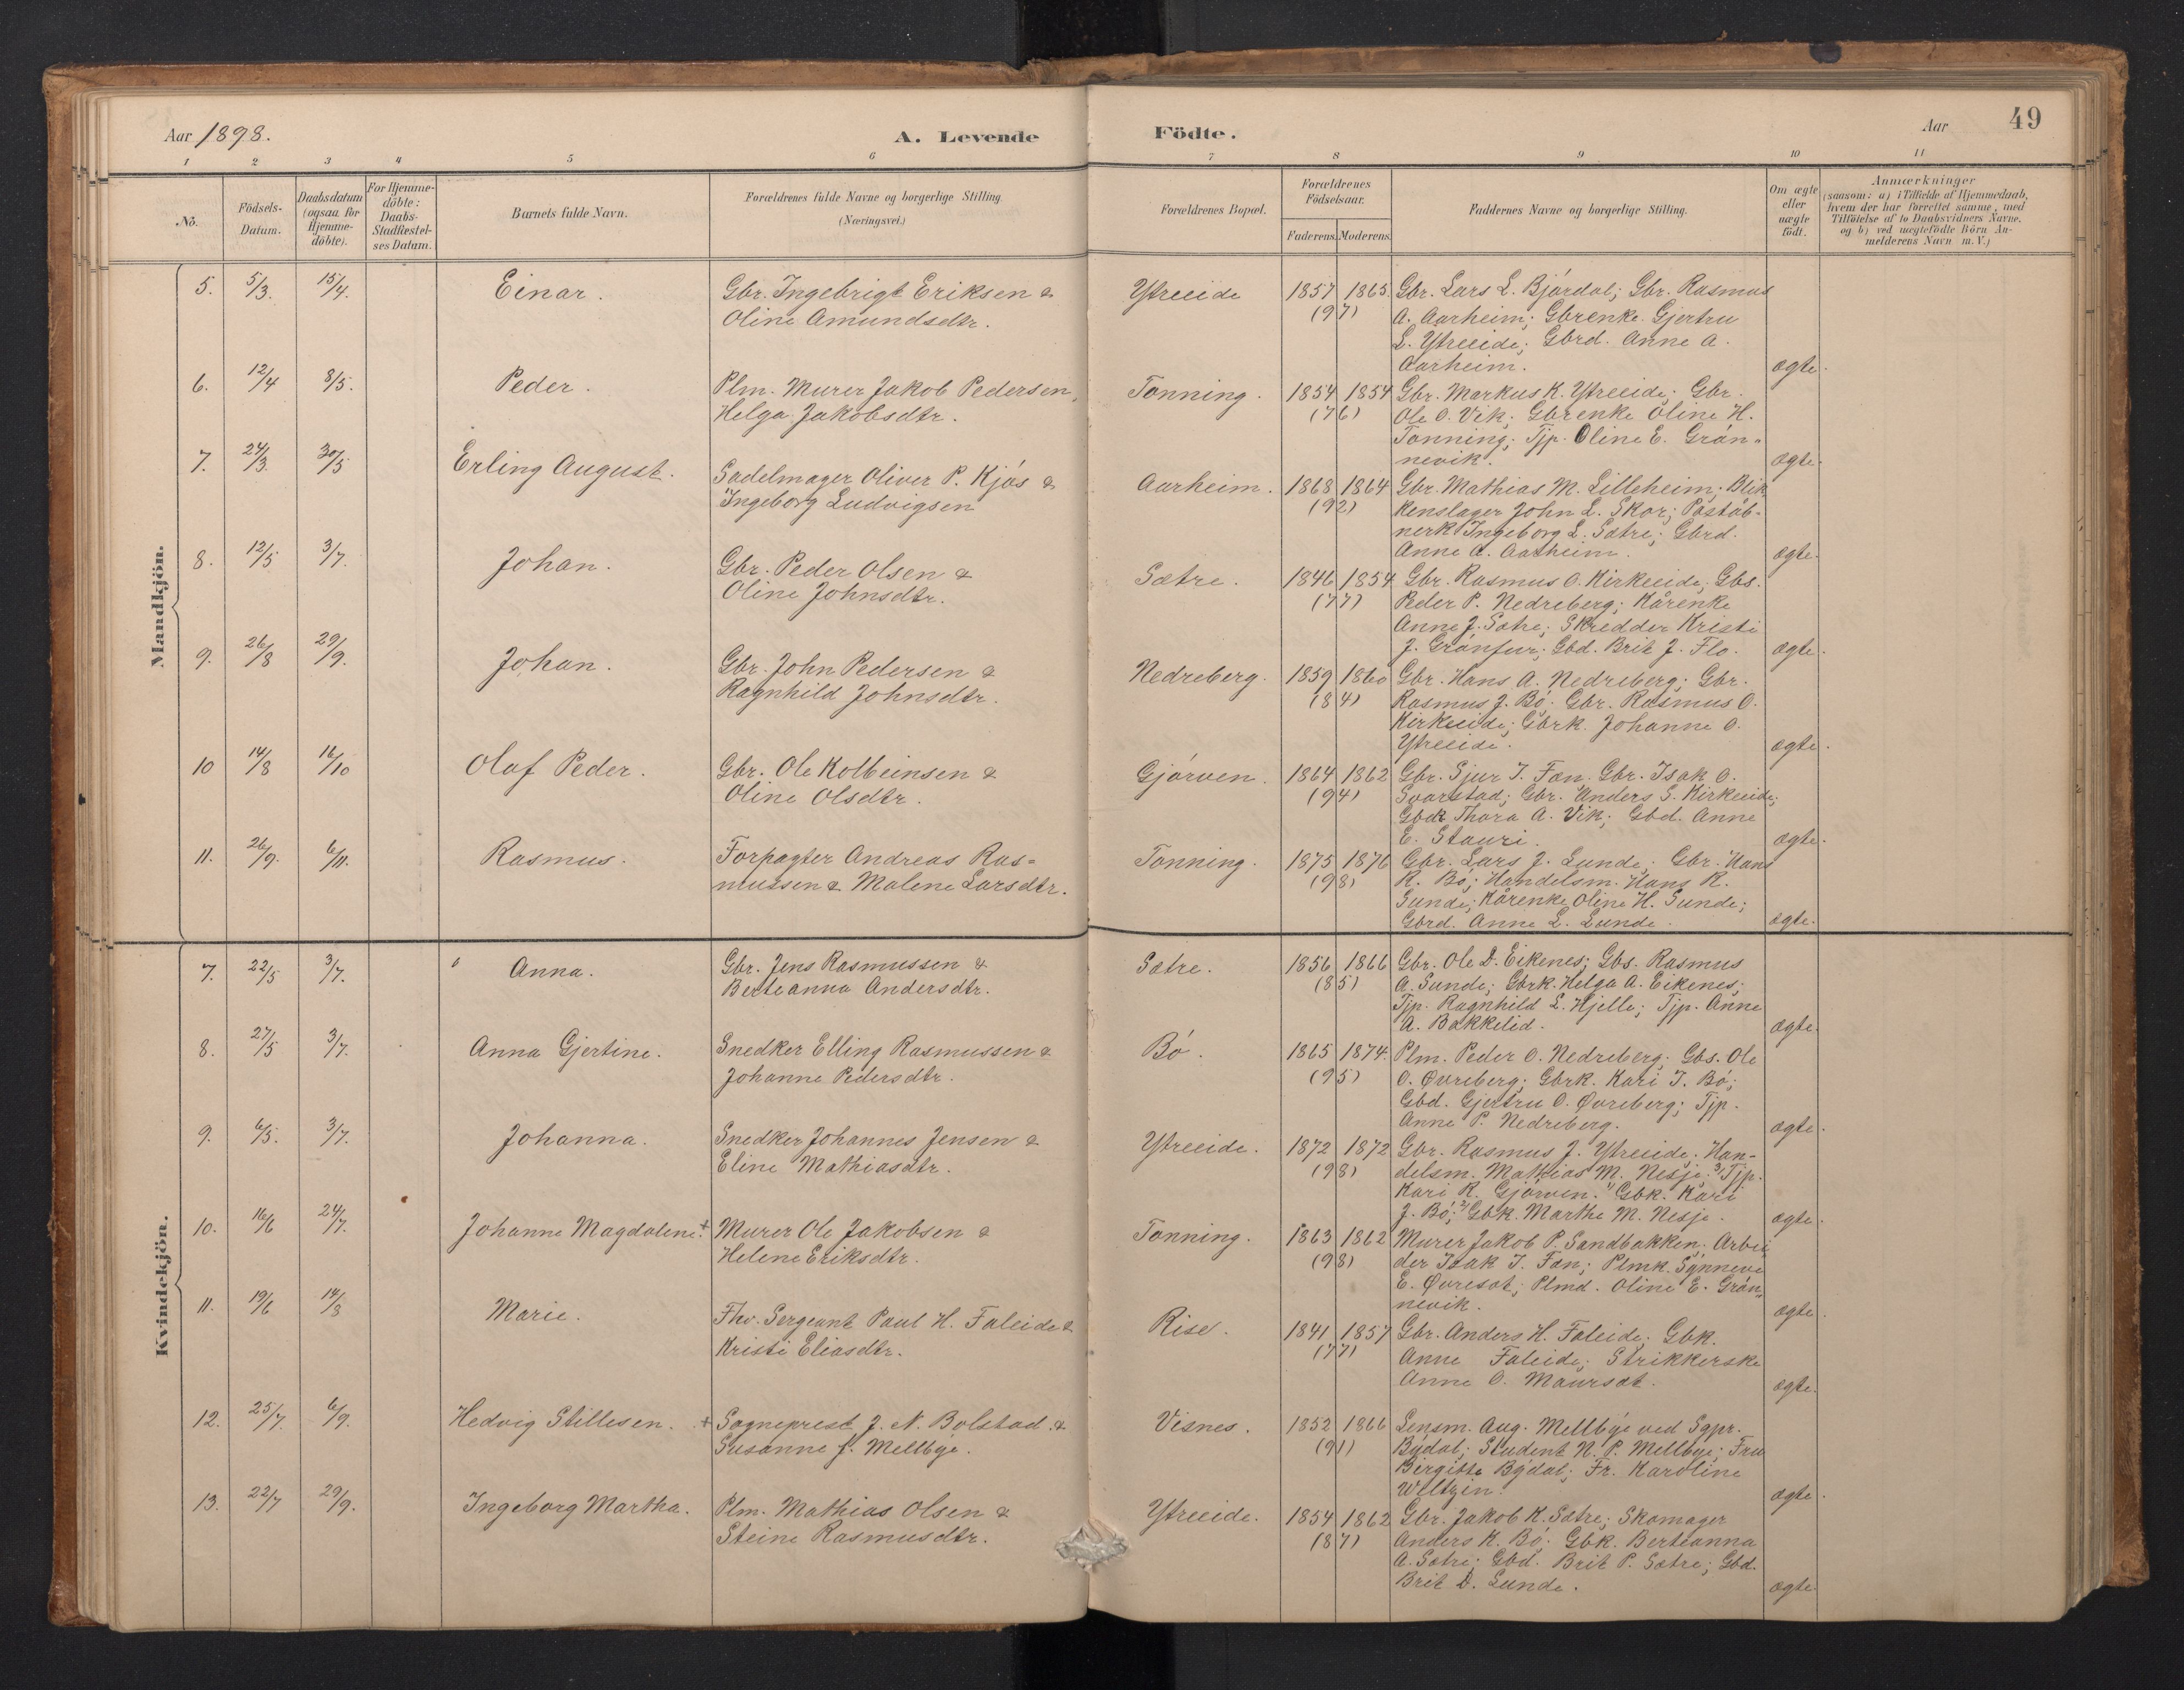 Aar 1898.
A. Levende Födte.
Aar
49
1 2 3 4 5 6 7 8 9 10 11
No.
Födsels-
Datum.
Daabsdatum
(ogsaa for
Hjemme-
döbte).
For Hjemme-
döbte:
Daabs-
Stadfæstel-
ses Datum.
Barnets fulde Navn.
Forældrenes fulde Navne og borgerlige Stilling
(Næringsvei.)
Forældrenes Bopæl.
Forældrenes
Födselsaar.
Faderens. Moderens.
Faddernes Navne og borgerlige Stilling.
Om ægte
eller
uægte
födt.
Anmærkninger
(saasom: a) i Tilfælde af Hjemmedaab,
hvem der har forrettet samme, med
Tilföielse af to Daabsvidners Navne.
og b) ved uægtefödte Börn An-
melderens Navn m. V.)
Mandkjön.
5. 5/3. 15/4. Einar.
Gbr. Ingebrigt Eriksen &
Oline Amundsdtr.
Ytreeide 1857 1865.
(97)
Gbr. Lars L. Bjórdal; Gbr. Rasmus
A. Aarheim; Gbrenke Gjertru
L. Ytreeide; Gbrd. Anne A.
Aarheim. ægte.
6. 12/4 8/5. Peder.
Plm. Murer Jakob Pedersen,
Helga Jakobsdtr.
Tonning. 1854 1854
(76)
Gbr. Markus K. Ytreeide; Gbr.
Ole O. Vik; Gbrenke Oline H.
Tonning; Tjp. Oline E. Grón-
nevik. ægte.
7. 24/3. 30/5 Erling August.
Sadelmager Oliver P. Kjós &
Ingeborg Ludvigsen
Aarheim. 1868 1864
(92)
Gbr. Mathias M. Lilleheim; Blik
kenslager John L. Skor; Póstáb-
nerk Ingeborg L. Sætre; Gbrd.
Anne A. Aarheim. ægte.
8. 12/5 3/7. Johan.
Gbr. Peder Olsen &
Oline Johnsdtr.
Sætre. 1846 1854
(77)
Gbr. Rasmus O. Kirkeeide; Gbs.
Peder P. Nedreberg; Kårenke
Anne J. Sætre; Skredder Kristi
J. Grónfur; Gbd. Brit J. Flo. ægte.
9. 26/8 29/9. Johan.
Gbr. John Pedersen &
Ragnhild Johnsdtr.
Nedreberg. 1859 1860
(84)
Gbr. Hans A. Nedreberg; Gbr.
Rasmus J. Bó; Gbr. Rasmus O.
Kirkeeide; Gbrk. Johanne O.
Ytreeide. ægte.
10 14/8 16/10 Olaf Peder.
Gbr. Ole Kolbeinsen &
Oline Olsdtr.
Gjórven. 1864 1862
(94)
Gbr. Sjur I. Fan. Gbr. Isak O.
Svarstad; Gbr. Anders S. Kirkeeide;
Gbdk Thora A. Vik; Gbd. Anne
E. Stauri. ægte.
11. 26/9. 6/11. Rasmus.
Forpagter Andreas Ras-
mussen & Malene Larsdtr.
Tonning. 1875 1876
(98)
Gbr. Lars J. Lunde; Gbr. Hans
R. Bó; Handelsm. Hans R.
Sunde; Kårenke Oline H. Sunde;
Gbrd. Anne L. Lunde. ægte.
Kvindekjön.
7. 22/5 3/7. Anna.
Gbr. Jens Rasmussen &
Berteanna Andersdtr.
Sætre. 1856 1866
(85)
Gbr. Ole D. Eikenes; Gbs. Rasmus
A. Sunde; Gbrk. Helga A. Eikenes;
Tjp. Ragnhild L. Hjelle; Tjp. Anne
A. Bakkelid. ægte.
8. 27/5 3/7. Anna Gjertine.
Snedker Elling Rasmussen &
Johanne Pedersdtr.
Bó. 1865 1874.
(95)
Plm. Peder O. Nedreberg; Gbs. Ole
O. Øvreberg; Gbrk. Kari I. Bó;
Gbd. Gjertru O. Øvreberg; Tjp.
Anne P. Nedreberg. ægte.
9. 6/5. 3/7. Johanna.
Snedker Johannes Jensen &
Eline Mathiasdtr.
Ytreeide. 1872 1872
(98)
Gbr. Rasmus J. Ytreeide; Han-
delsm. Mathias M. Nesje. 3) Tjp.
Kari R. Gjórven. 1) Gbk. Kari
J. Bó; 2) Gbk. Marthe M. Nesje. ægte.
10. 16/6 24/7. Johanne Magdalene. +
Murer Ole Jakobsen &
Helene Eriksdtr.
Tonning. 1863 1862
(98)
Murer Jakob P. Sandbakken; Arbei
der Isak I. Fan; Plmk. Synneve
E. Øvresæt; Plmd. Oline E. Grón-
nevik. ægte.
11. 19/6 14/8 Marie.
Fhv. Sergeant Paul H. Faleide &
Kristi Eliasdtr.
Rise. 1841 1857
(77)
Gbr. Anders H. Faleide; Gbk.
Anne Faleide; Strikkerske
Anne O. Maursæt. ægte.
12. 25/7 6/9. Hedvig Stillesen. +
Sogneprest J. N. Bolstad &
Susanne f. Mellbye.
Visnes. 1852 1866
(91)
Lensm. Aug. Mellbye ved Sgpr.
Bydal; Student N. P. Mellbye; Fru
Birgitte Bydal; Fr. Karoline
Weltzin. ægte.
13. 22/7 29/9. Ingeborg Martha.
Plm. Mathias Olsen &
Steine Rasmusdtr.
Ytreeide. 1854 1862
(87)
Gbr. Jakob K. Sætre; Skomager
Anders K. Bó; Gbk. Berteanna
A. Sætre; Gbd. Brit P. Sætre; Gbd.
Brit D. Sunde. ægte.